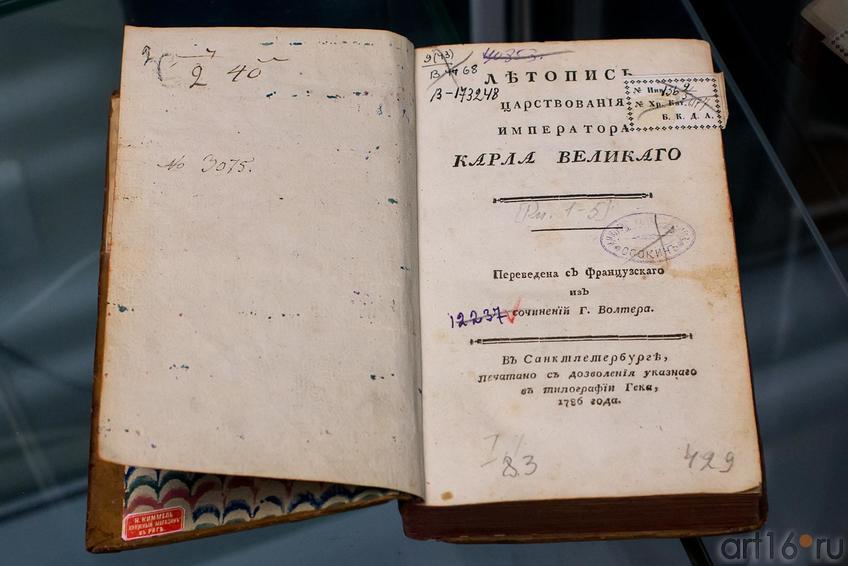 2 40
No 3075.
Н. КИММЕЛЬ
КНИЖНЫЙ МАГАЗИНЪ
ВЪ РИГѢ.
9(43)
В-4468
40853.
В-173248
ЛѢТОПИСЬ
ЦАРСТВОВАНІЯ
ИМПЕРАТОРА
КАРЛА ВЕЛИКАГО
№ Инв.
№ Хр. Кат.
Б. К. Д. А.
[Кн. 1-5]
ОСОКИНЪ
Переведена съ Французскаго
изъ
12237 сочиненій Г. Волтера.
Въ Санктпетербургѣ,
печатано съ дозволенія указнаго
въ типографіи Гека,
1786 года.
83
429
art16.ru